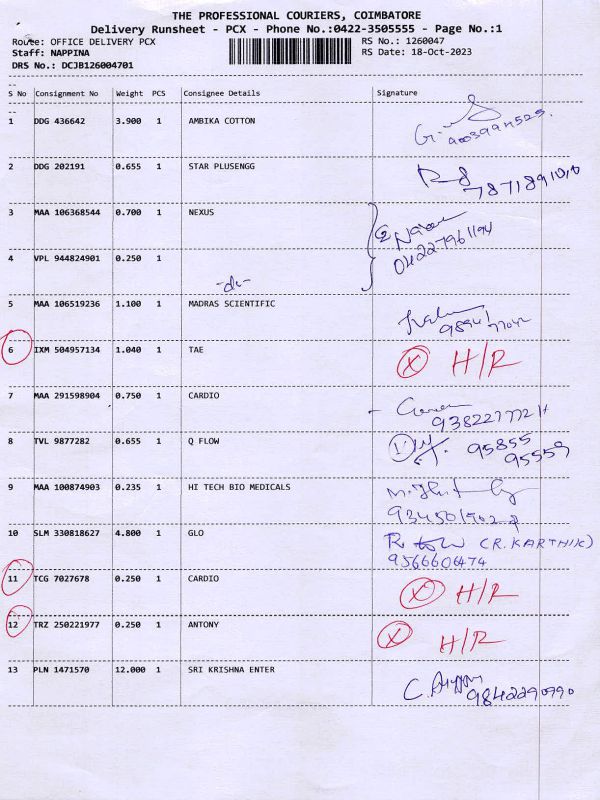 THE PROFESSIONAL COURIERS, COIMBATORE
Delivery Runsheet - PCX - Phone No.:0422-3505555 - Page No.:1
Route: OFFICE DELIVERY PCX RS No.: 1260047
Staff: NAPPINA RS Date: 18-Oct-2023
DRS No.: DCJB126004701
S No Consignment No Weight PCS Consignee Details Signature
1 DDG 436642 3.900 1 AMBIKA COTTON
2 DDG 202191 0.655 1 STAR PLUSENGG
3 MAA 106368544 0.700 1 NEXUS
04227961194
4 VPL 944824901 0.250 1
5 MAA 106519236 1.100 1 MADRAS SCIENTIFIC
6 IXM 504957134 1.040 1 TAE X H/R
7 MAA 291598904 0.750 1 CARDIO
8 TVL 9877282 0.655 1 Q FLOW
95855
95559
9 MAA 100874903 0.235 1 HI TECH BIO MEDICALS
10 SLM 330818627 4.800 1 GLO (R.KARTHIK)
9566606474
11 TCG 7027678 0.250 1 CARDIO X H/R
12 TRZ 250221977 0.250 1 ANTONY X H/R
13 PLN 1471570 12.000 1 SRI KRISHNA ENTER
9842290990